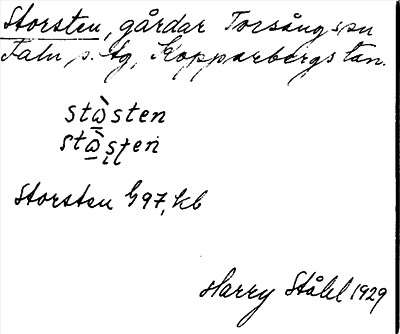 Storsten, gårdar Torsångs sn
Falu, s. tg, Kopparbergs län.
stὼ̲sten
stὼ̲ṣṭen
Storsten G97, kb
Harry Ståhl 1929